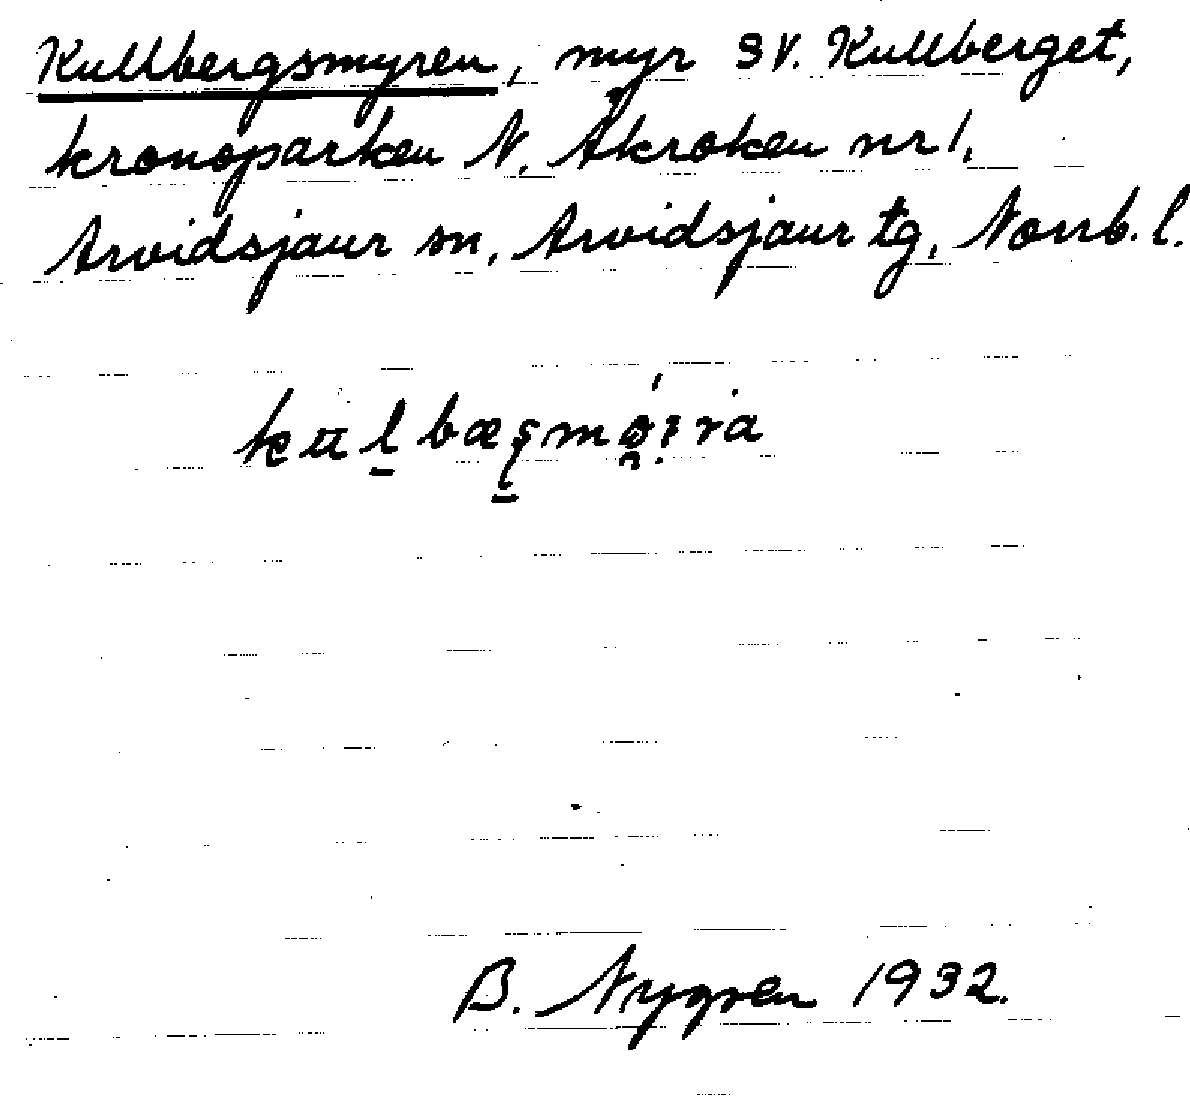 Kullbergsmyren, myr SV. Kullberget,
kronoparken N. Åkroken nr 1,
Arvidsjaur sn, Arvidsjaur tg, Norrb. l.
B. Nygren 1932.